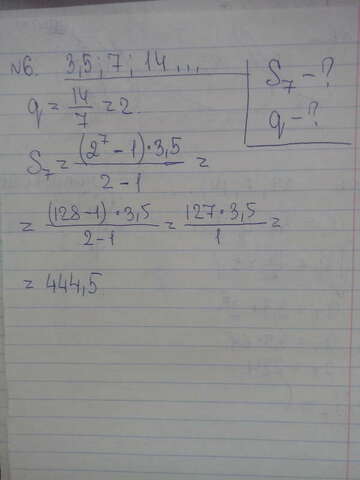 №6. 3,5; 7; 14...
S₇ - ?
q = 14/7 = 2.
q - ?
S₇ = (2⁷ - 1) · 3,5 / 2 - 1 =
= (128-1) · 3,5 / 2-1 = 127 · 3,5 / 1 =
= 444,5